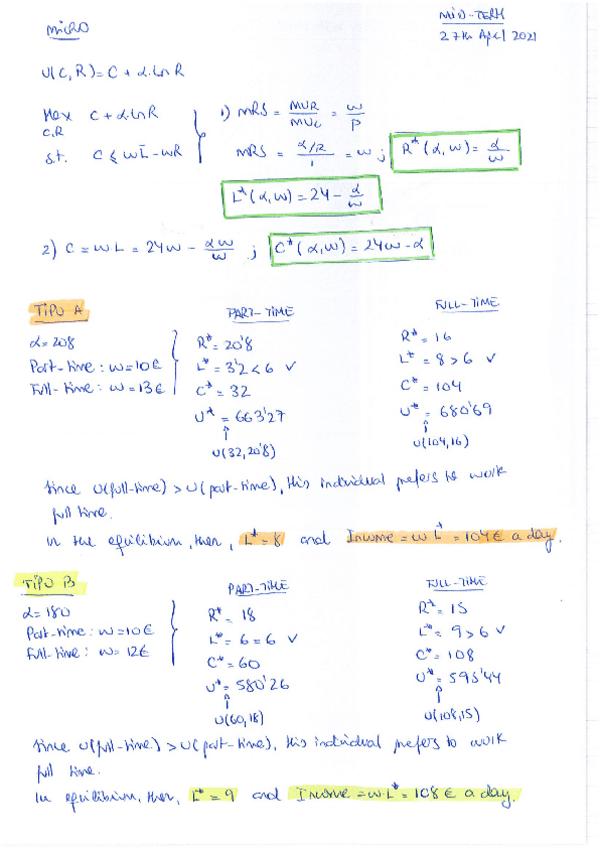 MICRO
MID-TERM
27th April 2021
U(C,R) = C + α·ln R
Max C + α·ln R
C,R
s.t. C ≤ wL̄ - wR
1) MRS = MUR/MUC = w/P
MRS = (α/R)/1 = w ; R*(α,w) = α/w
L*(α,w) = 24 - α/w
2) C = wL = 24w - αw/w ; C*(α,w) = 24w - α
TIPO A
α = 208
Part-time: w = 10€
Full-time: w = 13€
PART-TIME
R* = 20'8
L* = 3'2 < 6 ✓
C* = 32
U* = 663'27
↑
U(32,20'8)
FULL-TIME
R* = 16
L* = 8 > 6 ✓
C* = 104
U* = 680'69
↑
U(104,16)
Since U(full-time) > U(part-time), this individual prefers to work
full time.
In the equilibium, then, L* = 8 and Income = w L* = 104€ a day.
TIPO B
α = 180
Part-time: w = 10€
Full-time: w = 12€
PART-TIME
R* = 18
L* = 6 = 6 ✓
C* = 60
U* = 580'26
↑
U(60,18)
FULL-TIME
R* = 15
L* = 9 > 6 ✓
C* = 108
U* = 595'44
↑
U(108,15)
Since U(full-time) > U(part-time), this individual prefers to work
full time.
In equilibium, then, L* = 9 and Income = w·L* = 108€ a day.